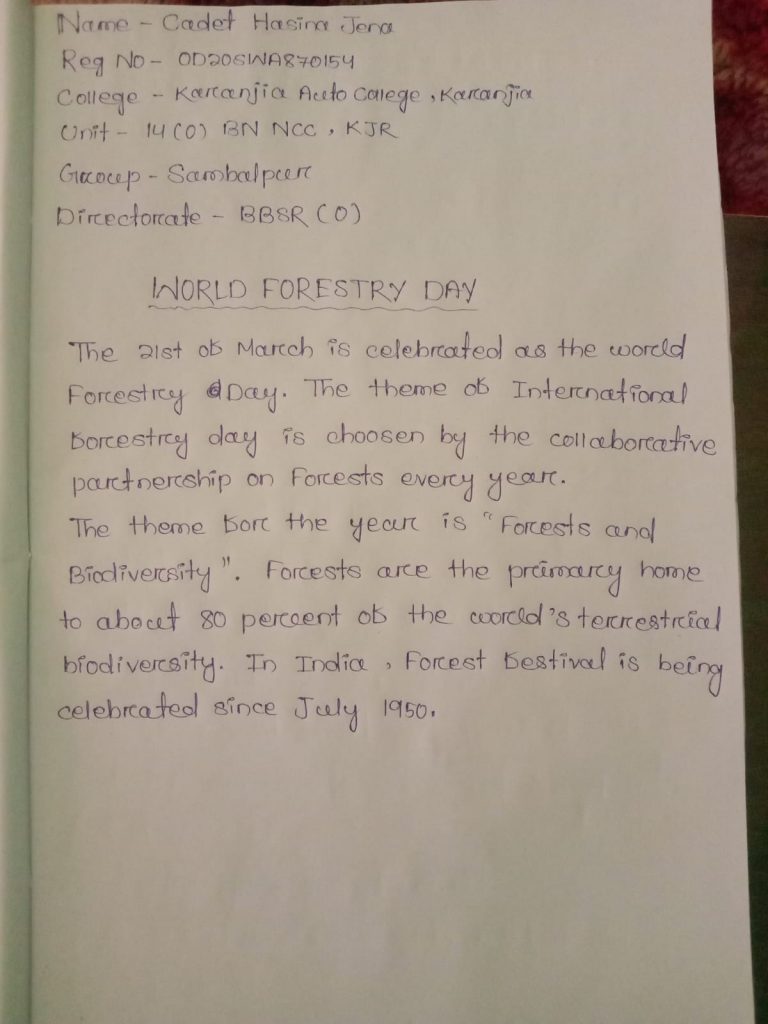 Name - Cadet Hasina Jena
Reg No - OD20SWA870154
College - Karanjia Auto College, Karanjia
Unit - 14 (O) BN NCC, KJR
Group - Sambalpur
Directorate - BBSR (O)
WORLD FORESTRY DAY
The 21st of March is celebrated as the world
Forestry Day. The theme of International
forestry day is choosen by the collaborative
partnership on Forests every year.
The theme for the year is "Forests and
Biodiversity". Forests are the primary home
to about 80 percent of the world's terrestrial
biodiversity. In India, Forest festival is being
celebrated since July 1950.